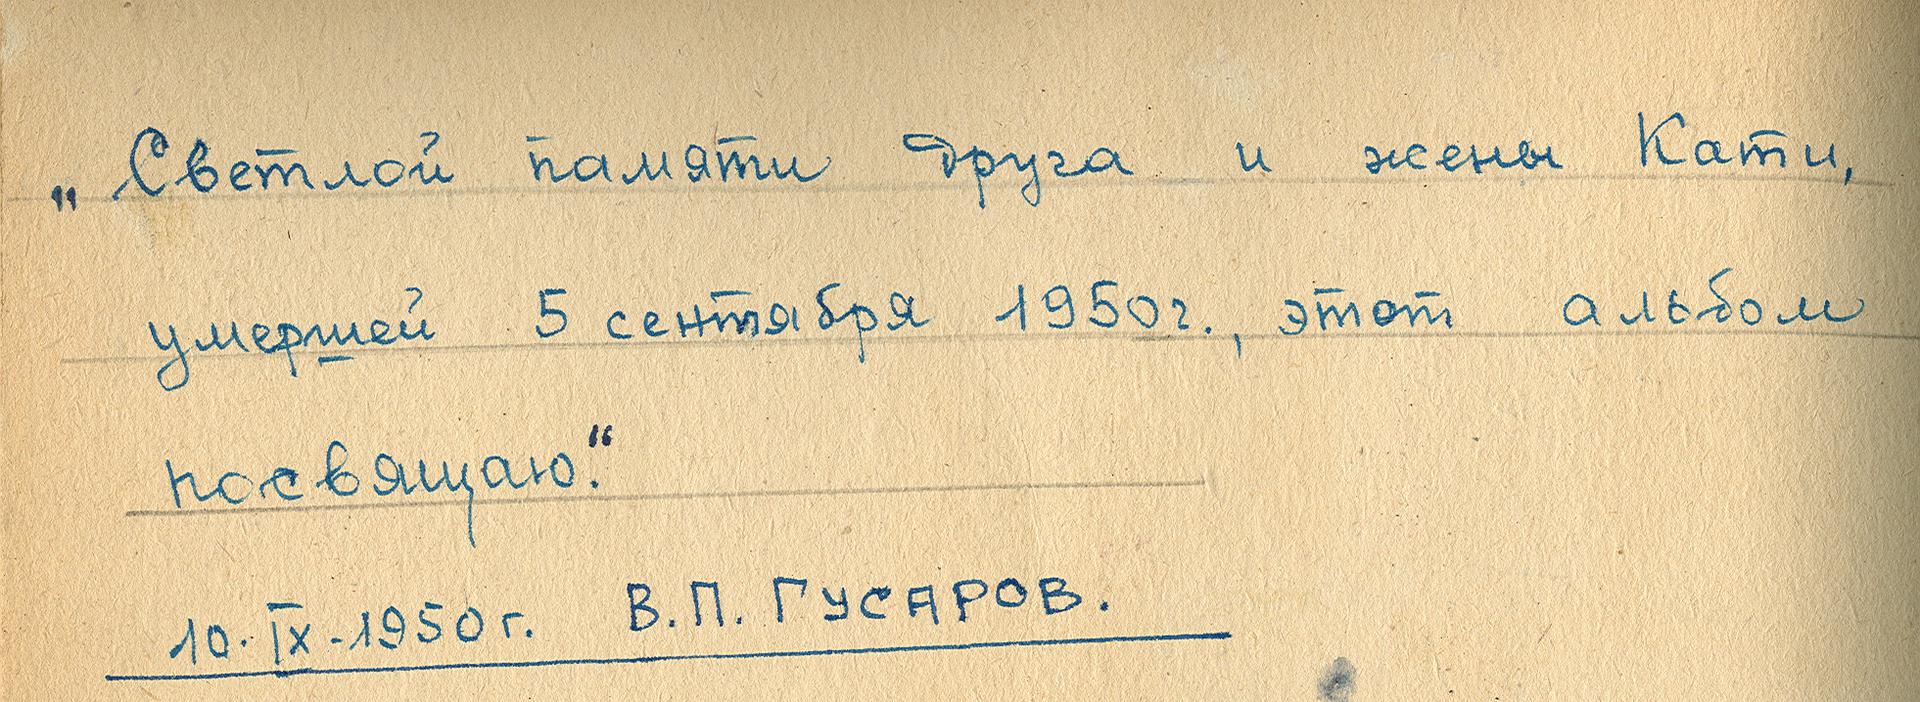 „Светлой памяти друга и жены Кати,
умершей 5 сентября 1950г., этот альбом
посвящаю.“
10.IX-1950г. В.П. ГУСАРОВ.